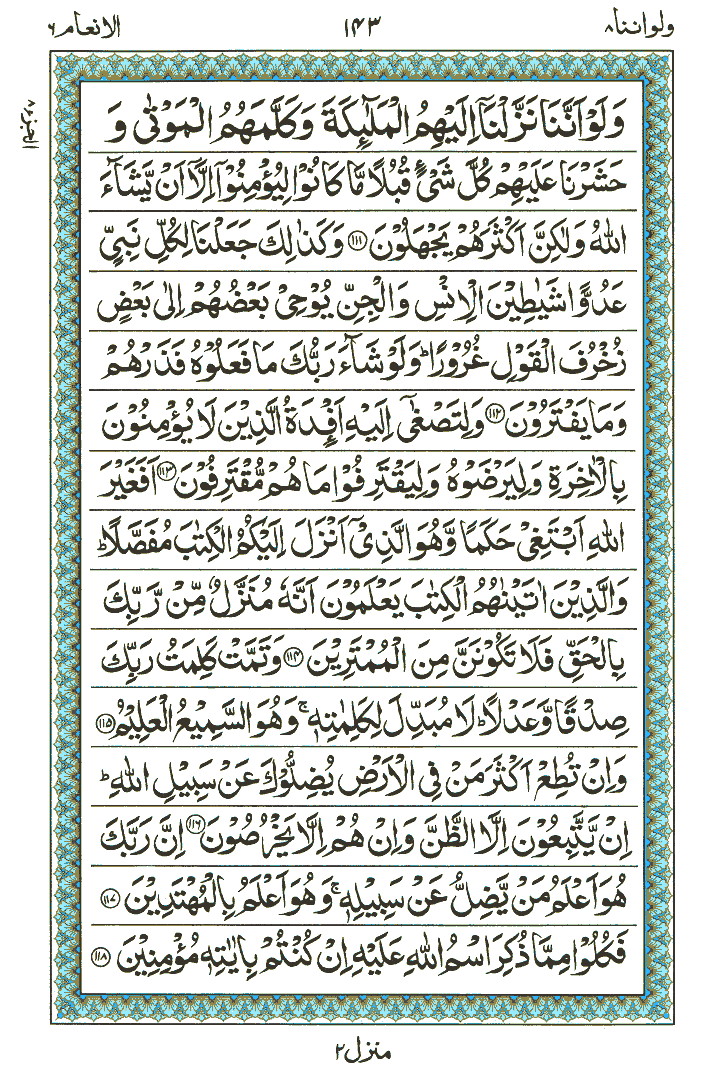 ولواننا۸ ۱۴۳ الانعام۶
الجزء۸
وَلَوْ اَنَّنَا نَزَّلْنَاۤ اِلَيْهِمُ الْمَلٰٓئِكَةَ وَكَلَّمَهُمُ الْمَوْتٰى وَ
حَشَرْنَا عَلَيْهِمْ كُلَّ شَىْءٍ قُبُلًا مَّا كَانُوْا لِيُؤْمِنُوْۤا اِلَّاۤ اَنْ يَّشَآءَ
اللّٰهُ وَلٰكِنَّ اَكْثَرَهُمْ يَجْهَلُوْنَ ۝۱۱۱ وَكَذٰلِكَ جَعَلْنَا لِكُلِّ نَبِىٍّ
عَدُوًّا شَيٰطِيْنَ الْاِنْسِ وَالْجِنِّ يُوْحِىْ بَعْضُهُمْ اِلٰى بَعْضٍ
زُخْرُفَ الْقَوْلِ غُرُوْرًا ؕ وَلَوْ شَآءَ رَبُّكَ مَا فَعَلُوْهُ فَذَرْهُمْ
وَمَا يَفْتَرُوْنَ ۝۱۱۲ وَلِتَصْغٰۤى اِلَيْهِ اَفْـِٕدَةُ الَّذِيْنَ لَا يُؤْمِنُوْنَ
بِالْاٰخِرَةِ وَلِيَرْضَوْهُ وَلِيَقْتَرِفُوْا مَا هُمْ مُّقْتَرِفُوْنَ ۝۱۱۳ اَفَغَيْرَ
اللّٰهِ اَبْتَغِىْ حَكَمًا وَّهُوَ الَّذِىْۤ اَنْزَلَ اِلَيْكُمُ الْكِتٰبَ مُفَصَّلًا ؕ
وَالَّذِيْنَ اٰتَيْنٰهُمُ الْكِتٰبَ يَعْلَمُوْنَ اَنَّهٗ مُنَزَّلٌ مِّنْ رَّبِّكَ
بِالْحَقِّ فَلَا تَكُوْنَنَّ مِنَ الْمُمْتَرِيْنَ ۝۱۱۴ وَتَمَّتْ كَلِمَتُ رَبِّكَ
صِدْقًا وَّعَدْلًا ؕ لَا مُبَدِّلَ لِكَلِمٰتِهٖ ۚ وَهُوَ السَّمِيْعُ الْعَلِيْمُ ۝۱۱۵
وَاِنْ تُطِعْ اَكْثَرَ مَنْ فِى الْاَرْضِ يُضِلُّوْكَ عَنْ سَبِيْلِ اللّٰهِ ؕ
اِنْ يَّتَّبِعُوْنَ اِلَّا الظَّنَّ وَاِنْ هُمْ اِلَّا يَخْرُصُوْنَ ۝۱۱۶ اِنَّ رَبَّكَ
هُوَ اَعْلَمُ مَنْ يَّضِلُّ عَنْ سَبِيْلِهٖ ۚ وَهُوَ اَعْلَمُ بِالْمُهْتَدِيْنَ ۝۱۱۷
فَكُلُوْا مِمَّا ذُكِرَ اسْمُ اللّٰهِ عَلَيْهِ اِنْ كُنْتُمْ بِاٰيٰتِهٖ مُؤْمِنِيْنَ ۝۱۱۸
منزل۲